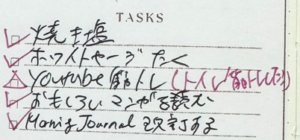 TASKS
焼き塩
ホワイトセージたく
Youtube 筋トレ(トイレ/筋トレした)
おもしろいマンガを読む
Moning Journal 改訂する